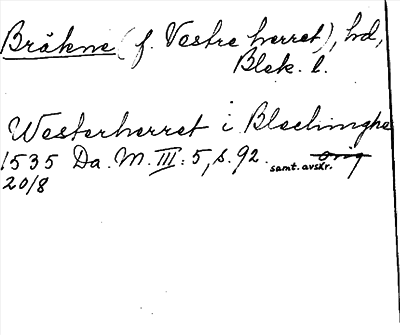 Bräkne (f. Vestre herret), hd,
Blek. l.
Westerherret i Blechinghe
1535 Da. M. III: 5, s. 92. orig
samt. avskr.
20/8